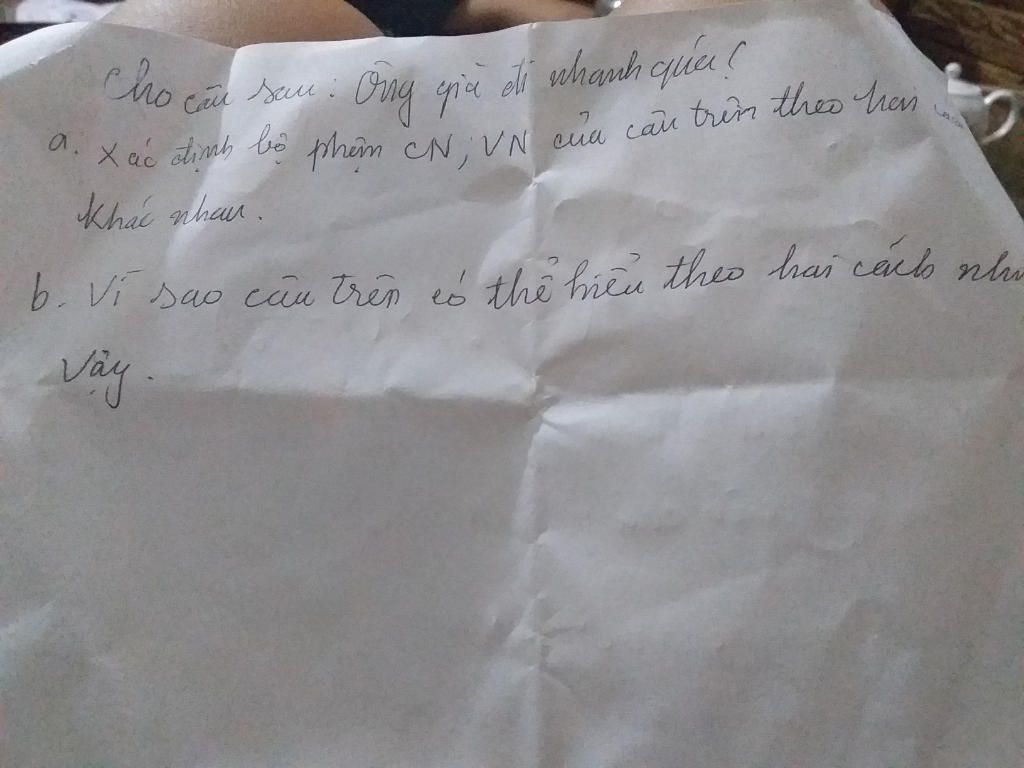 Cho câu sau: Ông già đi nhanh quá!
a. Xác định bộ phận CN, VN của câu trên theo hai
khác nhau.
b. Vì sao câu trên có thể hiểu theo hai cách như
vậy.